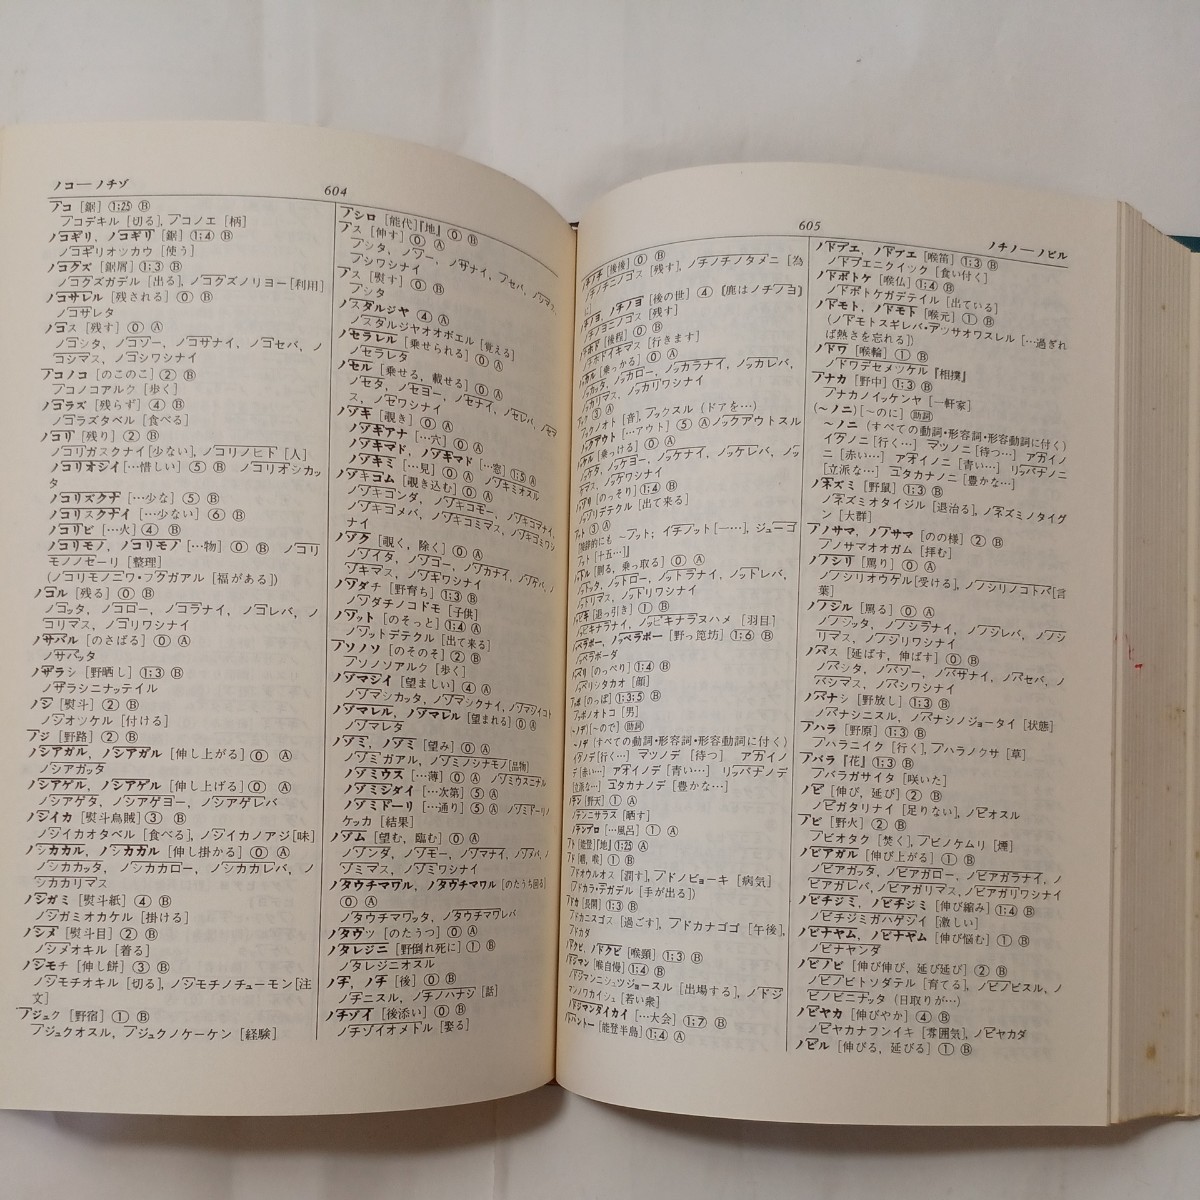 ノコ―ノチゾ
604
ノコ [鋸] 1:25 B
ノコデキル [切る], ノコノエ [柄]
ノコギリ, ノコギリ [鋸] 1:4 B
ノコギリオツカウ [使う]
ノコクズ [鋸屑] 1:3 B
ノコクズガデル [出る], ノコクズノリヨー [利用]
ノコサレル [残される] 0 B
ノコサレタ
ノコス [残す] 0 A
ノコシタ, ノコソー, ノコサナイ, ノコセバ, ノ
コシマス, ノコシワシナイ
ノコノコ [のこのこ] 2 B
ノコノコアルク [歩く]
ノコラズ [残らず] 4 B
ノコラズタベル [食べる]
ノコリ [残り] 2 B
ノコリガスクナイ [少ない], ノコリノヒト [人]
ノコリオシイ […惜しい] 5 B ノコリオシカッ
タ
ノコリスクナ […少な] 5 B
ノコリスクナイ […少ない] 6 B
ノコリビ […火] 4 B
ノコリモノ, ノコリモノ […物] 0 B ノコリ
モノノセーリ [整理]
(ノコリモノニワ・フクガアル [福がある])
ノコル [残る] 0 B
ノコッタ, ノコロー, ノコラナイ, ノコレバ, ノ
コリマス, ノコリワシナイ
ノサバル [のさばる] 0 A
ノサバッタ
ノザラシ [野晒し] 1:3 B
ノザラシニナッテイル
ノシ [熨斗] 2 B
ノシオツケル [付ける]
ノジ [野路] 2 B
ノシアガル, ノシアガル [伸し上がる] 0 A
ノシアガッタ
ノシアゲル, ノシアゲル [伸し上げる] 0 A
ノシアゲタ, ノシアゲヨー, ノシアゲレバ
ノシイカ [熨斗烏賊] 3 B
ノシイカオタベル [食べる], ノシイカノアジ[味]
ノシカカル, ノシカカル [伸し掛かる] 0 A
ノシカカッタ, ノシカカロー, ノシカカレバ, ノ
シカカリマス
ノシガミ [熨斗紙] 4 B
ノシガミオカケル [掛ける]
ノシメ [熨斗目] 2 B
ノシメオキル [着る]
ノシモチ [伸し餅] 3 B
ノシモチオキル [切る], ノシモチノチューモン[注
文]
ノジュク [野宿] 1 B
ノジュクオスル, ノジュクノケーケン [経験]
ノシロ [能代]『地』 0 B
ノス [伸す] 0 A
ノシタ, ノソー, ノサナイ, ノセバ, ノシマス,
ノシワシナイ
ノス [熨す] 0 B
ノシタ
ノスタルジヤ 4 A
ノスタルジヤオオボエル [覚える]
ノセラレル [乗せられる] 0 A
ノセラレタ
ノセル [乗せる, 載せる] 0 A
ノセタ, ノセヨー, ノセナイ, ノセレバ, ノセマ
ス, ノセワシナイ
ノゾキ [覗き] 0 A
ノゾキアナ […穴] 0 A
ノゾキマド, ノゾキマド […窓] 1:5 A
ノゾキミ […見] 0 A ノゾキミオスル
ノゾキコム [覗き込む] 0 A
ノゾキコンダ, ノゾキコモー, ノゾキコマナイ,
ノゾキコメバ, ノゾキコミマス, ノゾキコミワシ
ナイ
ノゾク [覗く, 除く] 0 A
ノゾイタ, ノゾコー, ノゾカナイ, ノゾケバ, ノ
ゾキマス, ノゾキワシナイ
ノソダチ [野育ち] 1:3 B
ノソダチノコドモ [子供]
ノソット [のそっと] 1:4 A
ノソットデテクル [出て来る]
ノソノソ [のそのそ] 2 B
ノソノソアルク [歩く]
ノゾマシイ [望ましい] 4 A
ノゾマシカッタ, ノゾマシクナイ, ノゾマシイコト
ノゾマレル, ノゾマレル [望まれる] 0 A
ノゾマレタ
ノゾミ, ノゾミ [望み] 0 A
ノゾミガアル, ノゾミノシナモノ [品物]
ノゾミウス […薄] 0 A ノゾミウスニナル
ノゾミシダイ […次第] 5 A
ノゾミドーリ […通り] 5 A ノゾミドーリノ
ケッカ [結果]
ノゾム [望む, 臨む] 0 A
ノゾンダ, ノゾモー, ノゾマナイ, ノゾメバ,
ノゾミマス, ノゾミワシナイ
ノタウチマワル, ノタウチマワル [のたうち回る]
0 A
ノタウチマワッタ, ノタウチマワレバ
ノタウツ [のたうつ] 0 A
ノタレジニ [野倒れ死に] 1 B
ノタレジニオスル
ノチ, ノチ [後] 0 B
ノチニスル, ノチノハナシ [話]
ノチゾイ [後添い] 0 B
ノチゾイオメトル [娶る]
605
ノチノ―ノビル
ノチノチ [後後] 0 B
ノチノチニノコス [残す], ノチノチノタメニ [為
ノチノヨ, ノチノヨ [後の世] 4 《鹿はノチノヨ》
ノチノヨニノコス [残す]
ノチホド [後程] 0 B
ノチホドイキマス [行きます]
ノッカル [乗っかる] 0 A
ノッカッタ, ノッカロー, ノッカラナイ, ノッカレバ,
ノッカリマス, ノッカリワシナイ
ノック 3 A
ノックノオト [音], ノックスル (ドアを…)
ノックアウト […アウト] 5 A ノックアウトスル
ノッケル [乗っける] 0 A
ノッケタ, ノッケヨー, ノッケナイ, ノッケレバ, ノッ
ケマス, ノッケワシナイ
ノッソリ [のっそり] 1:4 B
ノッソリデテクル [出て来る]
ノット 3 A
[接辞的にも ～ノット; イチノット [一…], ジューゴ
ノット [十五…]]
ノットル [則る, 乗っ取る] 0 A
ノットッタ, ノットロー, ノットラナイ, ノットレバ,
ノットリマス, ノットリワシナイ
ノッピキ [退っ引き] 1 B
ノッピキナラナイ, ノッピキナラヌハメ [羽目]
ノッペラボー, ノッペラボー [野っ篦坊] 1:6 B
ノッペラボーダ
ノッペリ [のっぺり] 1:4 B
ノッペリシタカオ [顔]
ノッポ [のっぽ] 1:3:5 B
ノッポノオトコ [男]
～ノデ [～ので] 助詞
～ノデ (すべての動詞・形容詞・形容動詞に付く)
イクノデ [行く…] マツノデ [待つ] アカイノ
デ [赤い…] アオイノデ [青い…] リッパナノデ
[立派な…] ユタカナノデ [豊かな…]
ノテン [野天] 1 A
ノテンニサラス [晒す]
ノテンブロ […風呂] 1 A
ノト [能登]『地』 1:25 A
ノド [咽, 喉] 1 B
ノドオウルオス [潤す], ノドノビョーキ [病気]
(ノドカラ・テガデル [手が出る])
ノドカ [長閑] 1:3 B
ノドカニスゴス [過ごす], ノドカナゴゴ [午後],
ノドカダ
ノドクビ, ノドクビ [喉頸] 1:3 B
ノドジマン [喉自慢] 1:4 B
ノドジマンニシュツジョースル [出場する], ノドジ
マンノワカイシュ [若い衆]
ノドジマンタイカイ […大会] 1:7 B
ノトハントー [能登半島] 1:4 A
ノドブエ, ノドブエ [喉笛] 1:3 B
ノドブエニクイツク [食い付く]
ノドボトケ [喉仏] 1:4 B
ノドボトケガデテイル [出ている]
ノドモト, ノドモト [喉元] 1 B
(ノドモトスギレバ・アツサオワスレル […過ぎれ
ば熱さを忘れる])
ノドワ [喉輪] 1 B
ノドワデセメツケル『相撲』
ノナカ [野中] 1:3 B
ノナカノイッケンヤ [一軒家]
(～ノニ) [～のに] 助詞
～ノニ (すべての動詞・形容詞・形容動詞に付く)
イクノニ [行く…] マツノニ [待つ…] アカイノ
ニ [赤い…] アオイノニ [青い…] リッパナノニ
[立派な…] ユタカナノニ [豊かな…]
ノネズミ [野鼠] 1:3 B
ノネズミオタイジル [退治る], ノネズミノタイグ
ン [大群]
ノノサマ, ノノサマ [のの様] 2 B
ノノサマオオガム [拝む]
ノノシリ [罵り] 0 A
ノノシリオウケル [受ける], ノノシリノコトバ[言
葉]
ノノシル [罵る] 0 A
ノノシッタ, ノノシラナイ, ノノシレバ, ノノシ
リマス, ノノシリワシナイ
ノバス [延ばす, 伸ばす] 0 B
ノバシタ, ノバソー, ノバサナイ, ノバセバ, ノ
バシマス, ノバシワシナイ
ノバナシ [野放し] 1:3 B
ノバナシニスル, ノバナシノジョータイ [状態]
ノハラ [野原] 1:3 B
ノハラニイク [行く], ノハラノクサ [草]
ノバラ『花』 1:3 B
ノバラガサイタ [咲いた]
ノビ [伸び, 延び] 2 B
ノビガタリナイ [足りない], ノビオスル
ノビ [野火] 2 B
ノビオタク [焚く], ノビノケムリ [煙]
ノビアガル [伸び上がる] 1 B
ノビアガッタ, ノビアガロー, ノビアガラナイ, ノ
ビアガレバ, ノビアガリマス, ノビアガリワシナイ
ノビチジミ, ノビチジミ [伸び縮み] 1:4 B
ノビチジミガハゲシイ [激しい]
ノビナヤム, ノビナヤム [伸び悩む] 1 B
ノビナヤンダ
ノビノビ [伸び伸び, 延び延び] 2 B
ノビノビトソダテル [育てる], ノビノビスル, ノ
ビノビニナッタ (日取りが…)
ノビヤカ [伸びやか] 4 B
ノビヤカナフンイキ [雰囲気], ノビヤカダ
ノビル [伸びる, 延びる] 1 B